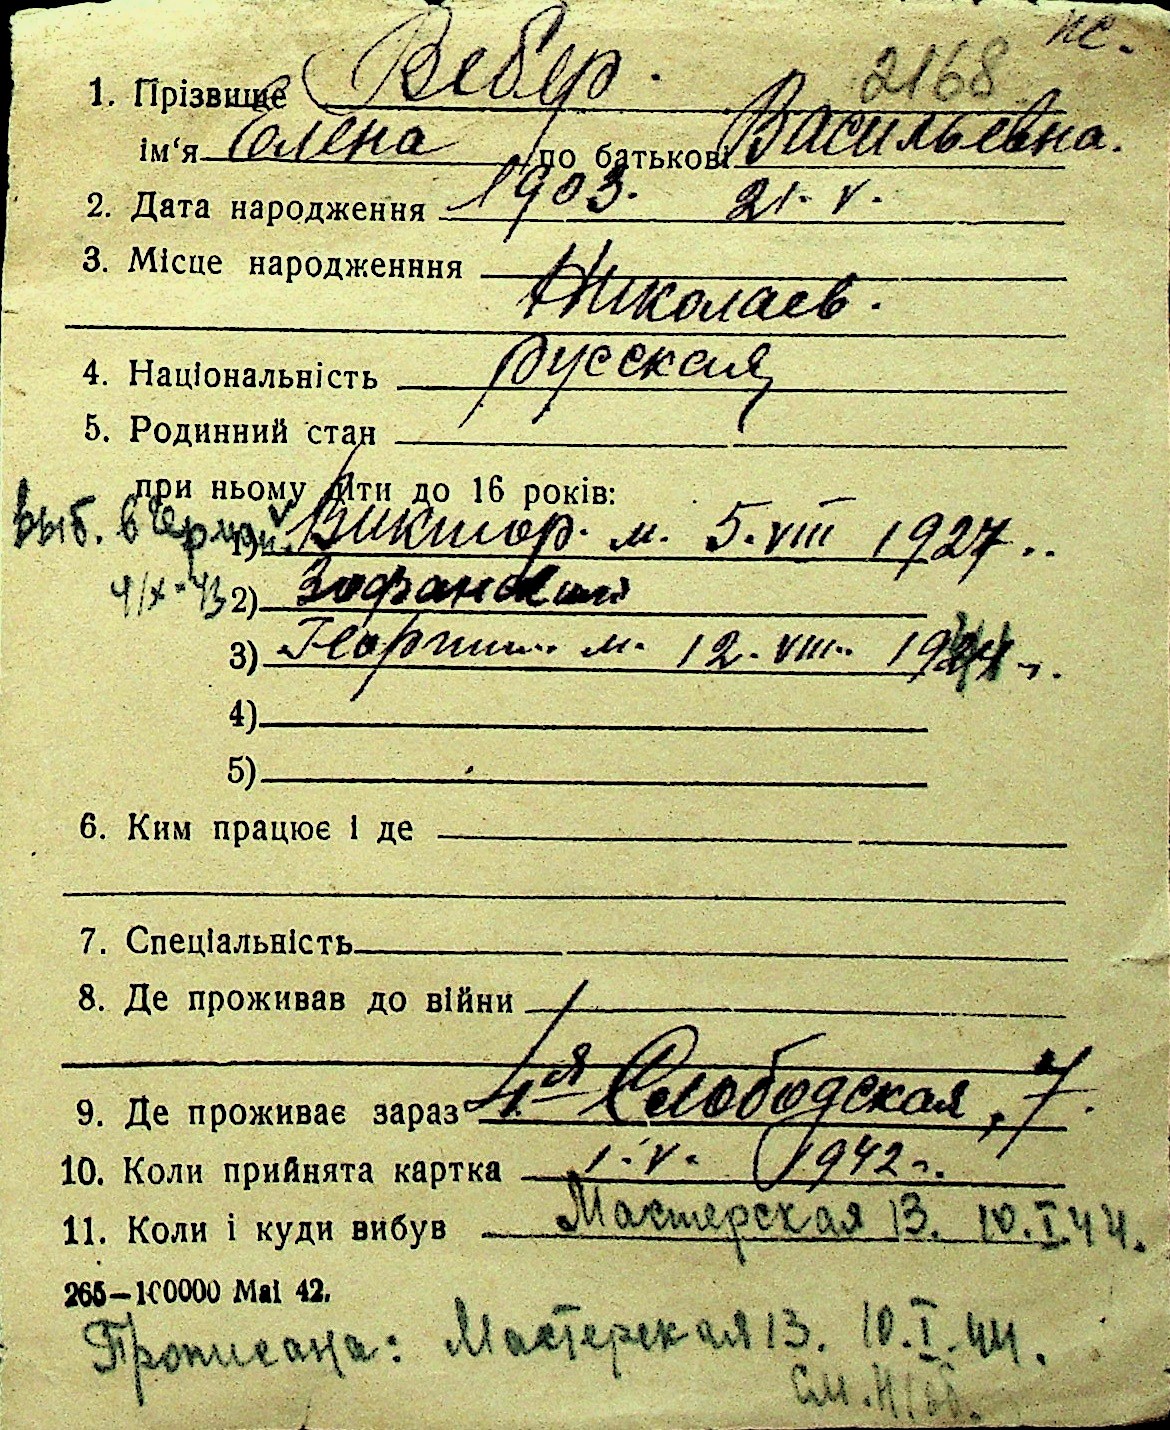 пс.
2168
1. Прізвище Вебер.
ім‘я Елена по батькові Васильевна.
2. Дата народження 1903. 21. V.
3. Місце народженння
Николаев.
4. Національність русская
5. Родинний стан
при ньому діти до 16 років:
выб. в
1) Виктор. м. 5. VIII 1927..
4/X-43 2)
3) Георгий м. 12. VIII.
4)
5)
6. Ким працює і де
7. Спеціальність
8. Де проживав до війни
9. Де проживає зараз 4ая Слободская, 7.
10. Коли прийнята картка 1. V. 1942 г.
11. Коли і куди вибув Мастерская 13. 10. I. 44.
265—100000 Маі 42.
Прописана: Мастерская 13. 10. I. 44.
См.